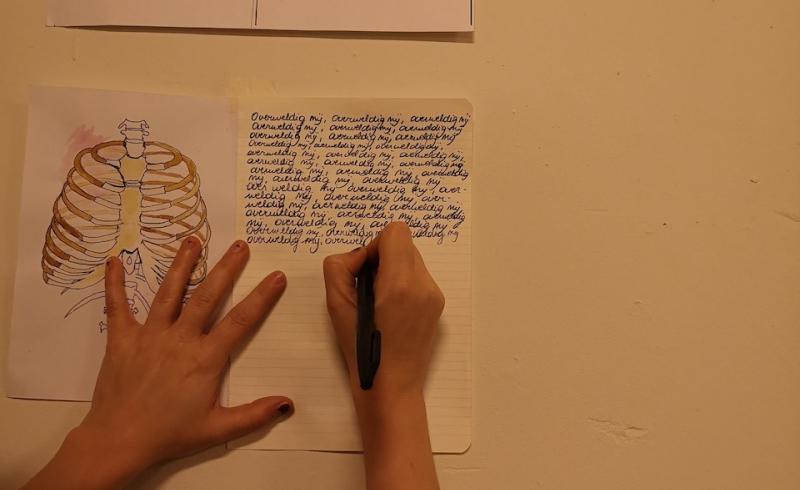 Overweldig mij, overweldig mij, overweldig mij
overweldig mij, overweldig mij, overweldig mij
overweldig mij, overweldig mij, overweldig mij
overweldig mij, overweldig mij, overweldig mij
overweldig mij, overweldig mij, overweldig mij,
overweldig mij, overweldig mij, overweldig mij
overweldig mij, overweldig mij, overweldig
mij, overweldig mij, overweldig mij
overweldig mij overweldig mij, over-
weldig mij, overweldig mij, over-
weldig mij, overweldig mij, overweldig mij,
overweldig mij, overweldig mij, overweldig
mij, overweldig mij, overweldig mij
overweldig mij, overweldig mij, overweldig mij
overweldig mij,